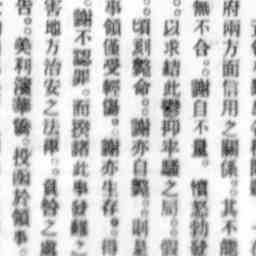 府兩方面信用之關係。其不能
無不合。謝自不量。憤怒勃發
。以求結此鬱抑牢騷之局。假
。頃刻斃命。謝亦自斃。則是
事領僅受輕傷。謝亦生存。得
。謝不認罪。而揆諸此事發難之
害地方治安之法律。負咎之處
告。美利濱華僑。投函於領事。